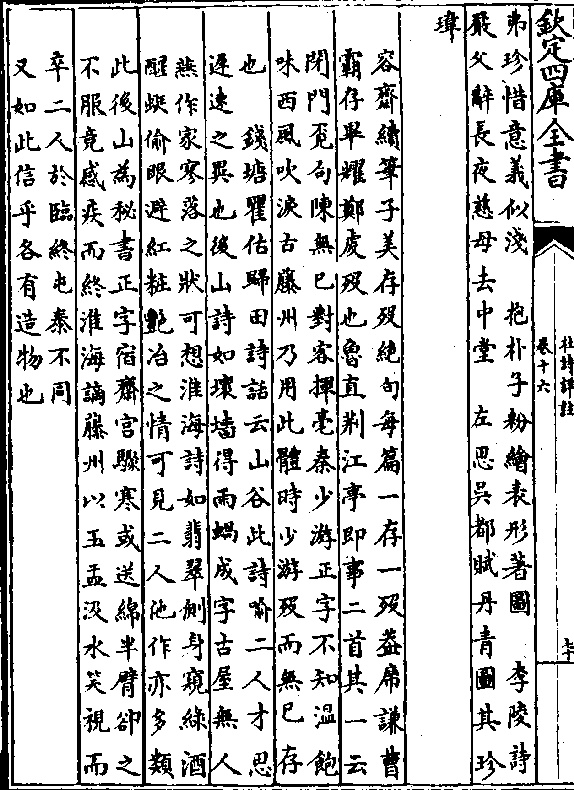 欽定四庫全書
杜詩詳註
卷十六
弗珍惜意義似淺　抱朴子粉繪表形著圖　李陵詩
嚴父辭長夜慈母去中堂　左思吳都賦丹青圖其珍
瑋
容齋續筆子美存殁絶句每篇一存一殁葢席謙曹
霸存畢耀鄭虔殁也魯直荆江亭即事二首其一云
閉門覓句陳無已對客揮毫秦少游正字不知温飽
味西風吹淚古藤州乃用此體時少游殁而無已存
也　錢塘瞿佑歸田詩話云山谷此詩喻二人才思
遲速之異也後山詩如壞墻得雨蝸成字古屋無人
燕作家寥落之狀可想淮海詩如翡翠側身窺綠酒
蜻蜓偷眼避紅粧艷冶之情可見二人他作亦多類
此後山為秘書正字宿齋宮驟寒或送綿半臂卻之
不服竟感疾而終淮海謫藤州以玉盂汲水笑視而
卒二人於臨終屯泰不同
又如此信乎各有造物也